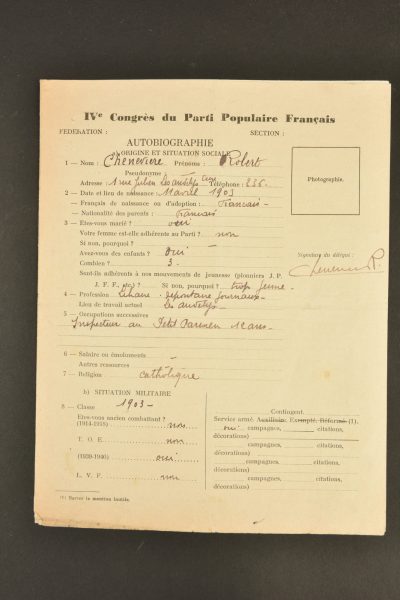 IVe Congrès du Parti Populaire Français
FEDERATION : SECTION :
AUTOBIOGRAPHIE
a) ORIGINE ET SITUATION SOCIALE
1 — Nom : Chenevière Prénoms : Robert
Pseudonyme
Adresse : 1 rue Julien Téléphone : 236
Photographie.
2 — Date et lieu de naissance : 11 avril 1903
Français de naissance ou d'adoption : Francais -
Nationalité des parents : Francais
3 — Etes-vous marié ? oui
Votre femme est-elle adhérente au Parti ? non
Si non, pourquoi ? —
Avez-vous des enfants ? oui
Combien ? 3 -
Signature du délégué :
Sont-ils adhérents à nos mouvements de jeunesse (pionniers J. P.
J. F. F., etc.) ? Si non, pourquoi ? trop jeune -
4 — Profession Libraire - dépositaire journaux -
Lieu de travail actuel
5 — Occupations successives
Inspecteur au Petit Parisien
6 — Salaire ou émoluments —
Autres ressources
7 — Religion catholique
b) SITUATION MILITAIRE
8 — Classe 1903 -
Etes-vous ancien combattant ?
(1914-1918) non
T. O. E. non
(1939-1940) oui
L. V. F. non
Contingent.
Service armé Auxiliaire Exempté, Réformé (1).
oui campagnes, citations,
décorations)
campagnes, citations,
décorations)
campagnes, citations,
décorations)
campagnes, citations,
décorations)
(1) Barrer la mention inutile.